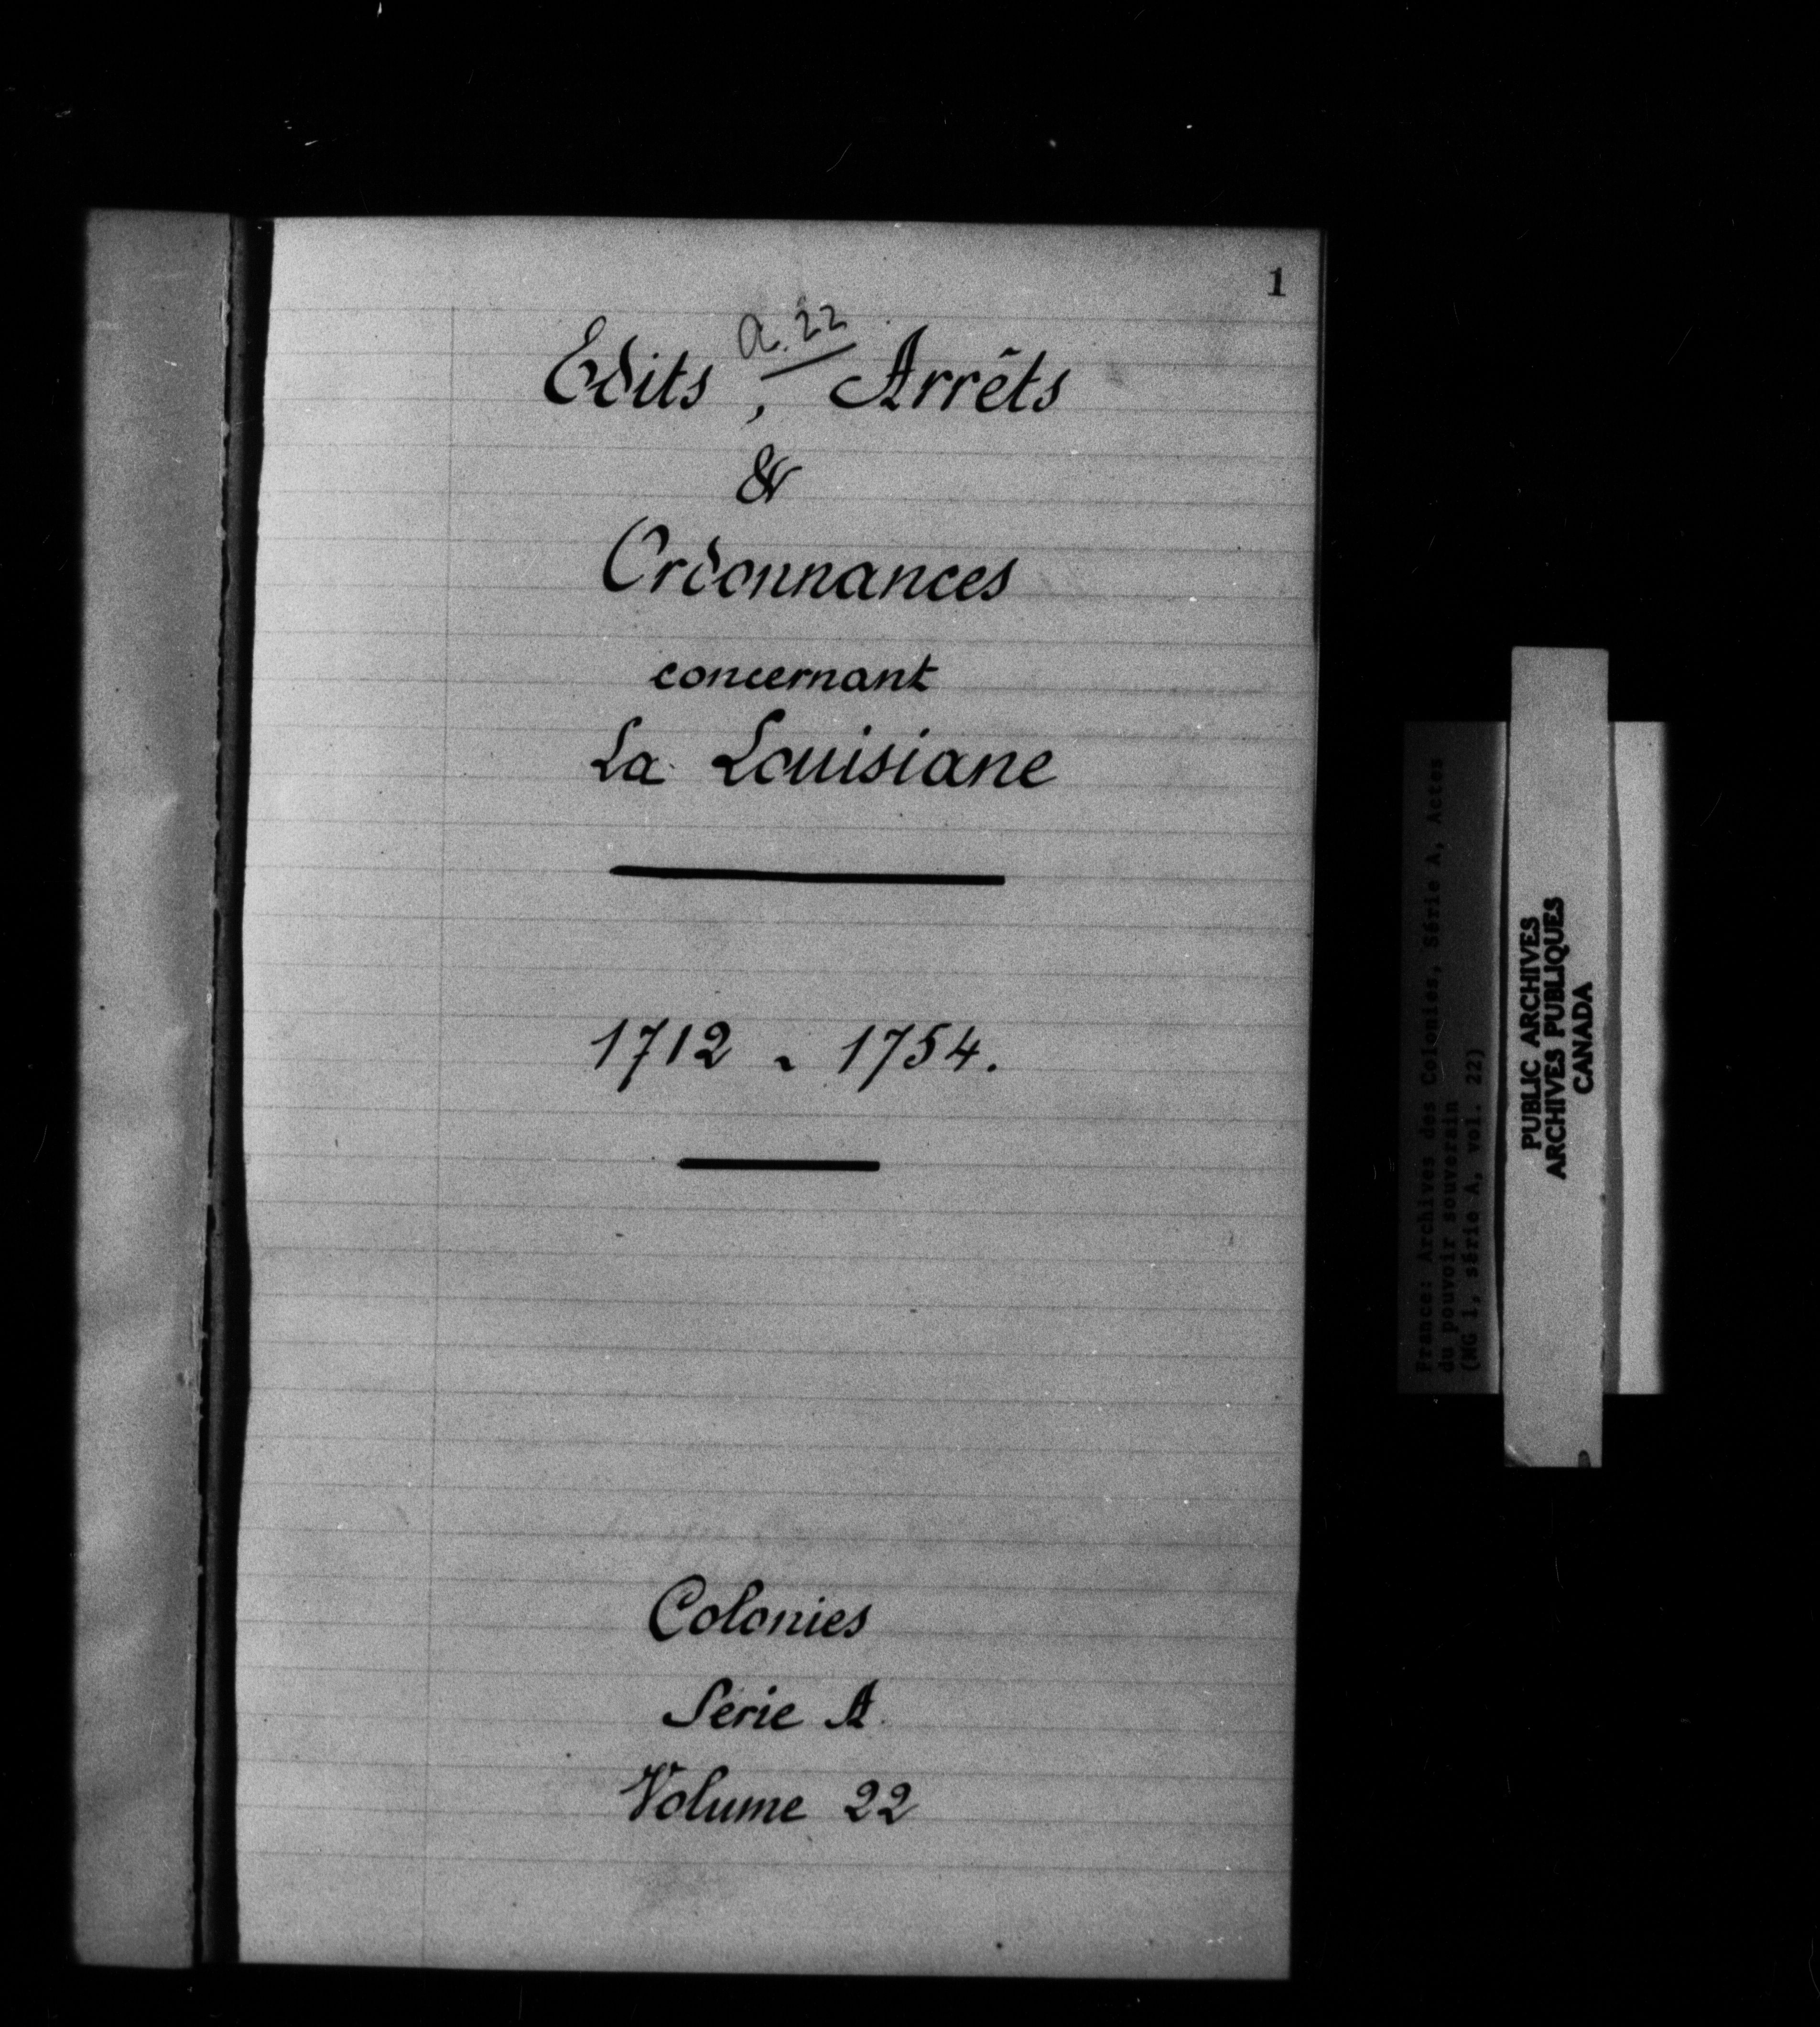 1
a. 22
Edits, Arrêts
&
Ordonnances
concernant
La Louisiane
1712 - 1754.
Colonies
Serie A.
Volume 22
France: Archives des Colonies, Série A, Actes
du pouvoir souverain
(MG 1, série A, vol. 22)
PUBLIC ARCHIVES
ARCHIVES PUBLIQUES
CANADA